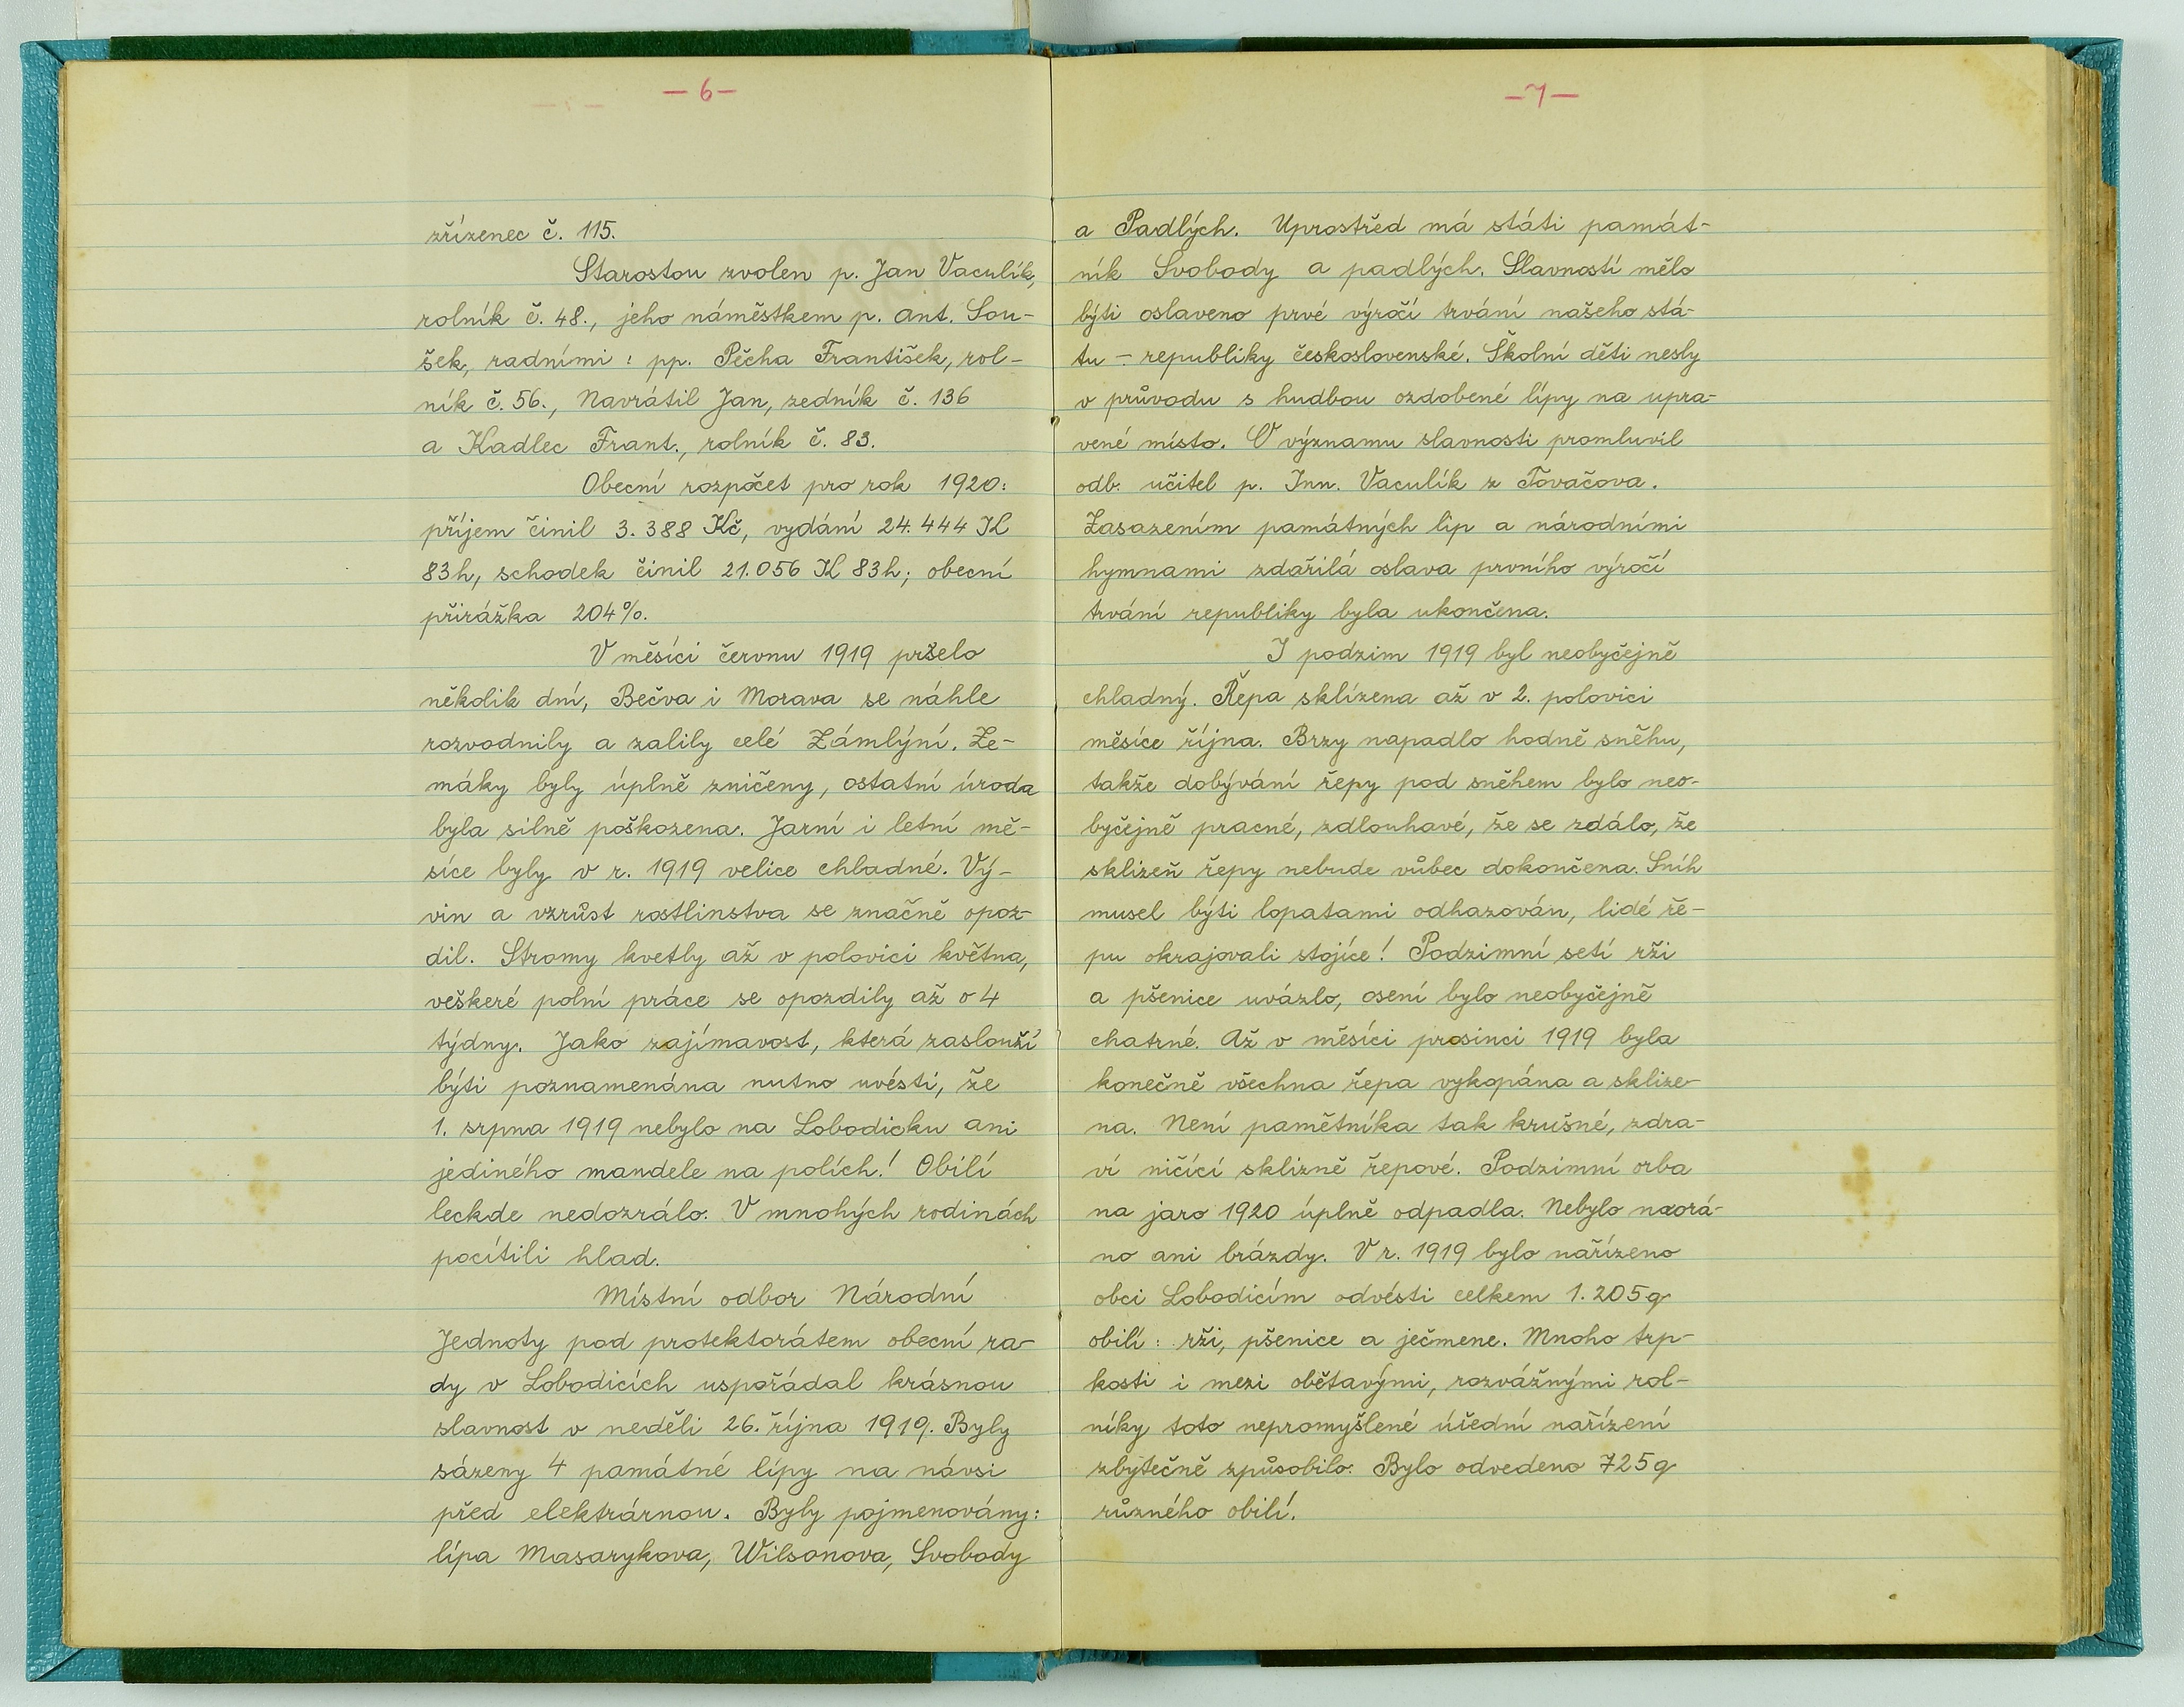 — 6 —
zřízenec č. 115.
Starostou zvolen p. Jan Vaculík,
rolník č. 48., jeho náměstkem p. Ant. Sou-
šek, radními: pp. Pěcha František, rol-
ník č. 56., Navrátil Jan, zedník č. 136
a Kadlec Frant., rolník č. 83.
Obecní rozpočet pro rok 1920:
příjem činil 3.388 Kč, vydání 24.444 K
83h, schodek činil 21.056 K 83h; obecní
přirážka 204%.
V měsíci červnu 1919 pršelo
několik dní, Bečva i Morava se náhle
rozvodnily a zalily celé Zámlýní. Ze-
máky byly úplně zničeny, ostatní úroda
byla silně poškozena. Jarní i letní mě-
síce byly v r. 1919 velice chladné. Vý-
vin a vzrůst rostlinstva se značně opoz-
dil. Stromy kvetly až v polovici května,
veškeré polní práce se opozdily až o 4
týdny. Jako zajímavost, která zaslouží
býti poznamenána nutno uvésti, že
1. srpna 1919 nebylo na Lobodicku ani
jediného mandele na polích! Obilí
leckde nedozrálo. V mnohých rodinách
pocítili hlad.
Místní odbor Národní
Jednoty pod protektorátem obecní ra-
dy v Lobodicích uspořádal krásnou
slavnost v neděli 26. října 1919. Byly
sázeny 4 památné lípy na návsi
před elektrárnou. Byly pojmenovány:
lípa Masarykova, Wilsonova, Svobody
— 7 —
a Padlých. Uprostřed má státi památ-
ník Svobody a padlých. Slavností mělo
býti oslaveno prvé výročí trvání našeho stá-
tu - republiky československé. Školní děti nesly
v průvodu s hudbou ozdobené lípy na upra-
vené místo. O významu slavnosti promluvil
odb. učitel p. Inn. Vaculík z Tovačova.
Zasazením památných lip a národními
hymnami zdařilá oslava prvního výročí
trvání republiky byla ukončena.
I podzim 1919 byl neobyčejně
chladný. Řepa sklízena až v 2. polovici
měsíce října. Brzy napadlo hodně sněhu,
takže dobývání řepy pod sněhem bylo neo-
byčejně pracné, zdlouhavé, že se zdálo, že
sklizeň řepy nebude vůbec dokončena. Sníh
musel býti lopatami odhazován, lidé ře-
pu okrajovali stojíce! Podzimní setí rži
a pšenice uvázlo, osení bylo neobyčejně
chatrné. Až v měsíci prosinci 1919 byla
konečně všechna řepa vykopána a sklize-
na. Není pamětníka tak krušné, zdra-
ví ničící sklizně řepové. Podzimní orba
na jaro 1920 úplně odpadla. Nebylo naorá-
no ani brázdy. V r. 1919 bylo nařízeno
obci Lobodicím odvésti celkem 1.205 q
obilí: rži, pšenice a ječmene. Mnoho trp-
kosti i mezi obětavými, rozvážnými rol-
níky toto nepromyšlené úřední nařízení
zbytečně způsobilo. Bylo odvedeno 725 q
různého obilí.